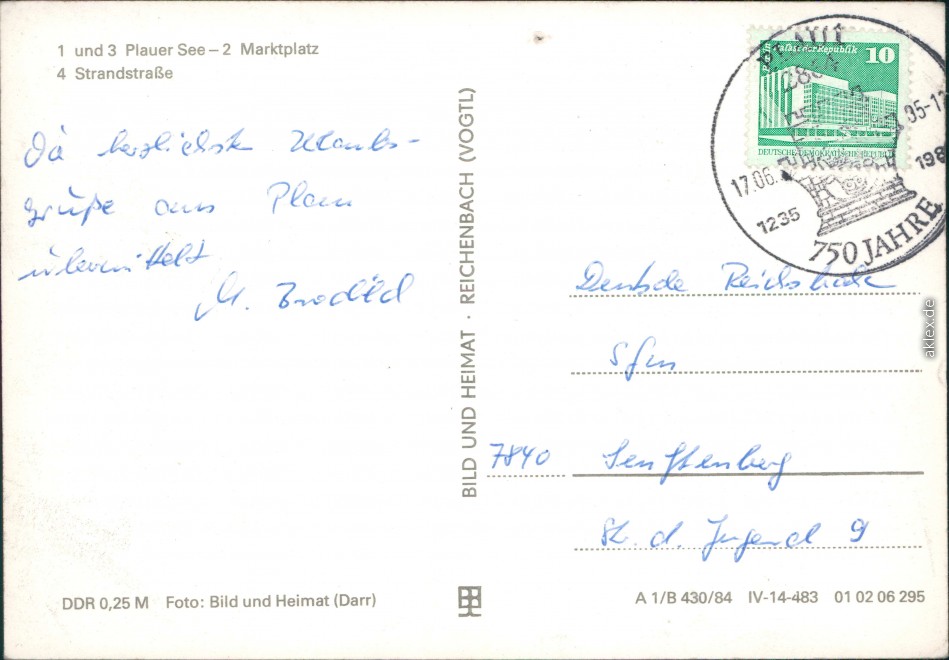 1 und 3 Plauer See – 2 Marktplatz
4 Strandstraße
Die herzlichsten Urlaubs-
grüße aus Plau
übermittelt
M.
BILD UND HEIMAT · REICHENBACH (VOGTL)
10
DEUTSCHE DEMOKRATISCHE REPUBLIK
PLAU 1
2864
17.06.85-12
1235
198
750 JAHRE
Deutsche Reichsbahn
Sfm
7840 Senftenberg
Str. d. Jugend 9
DDR 0,25 M Foto: Bild und Heimat (Darr)
A 1/B 430/84 IV-14-483 01 02 06 295
aklex.de